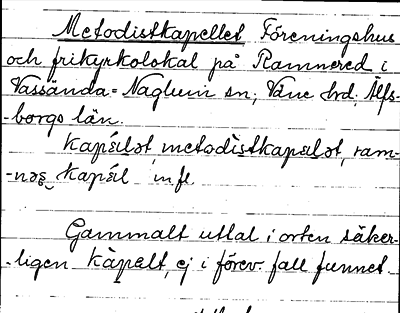 Metodistkapellet Föreningshus
och frikyrkolokal på Ramnered i
Vassända-Naglum sn, Väne hd, Älfs-
-borgs län.
kapélət, metodìstkapɛlət, ram-
-nəs kapél m. fl.
Gammalt uttal i orten säker-
-ligen kàpɛlt, ej i förev. fall funnet.